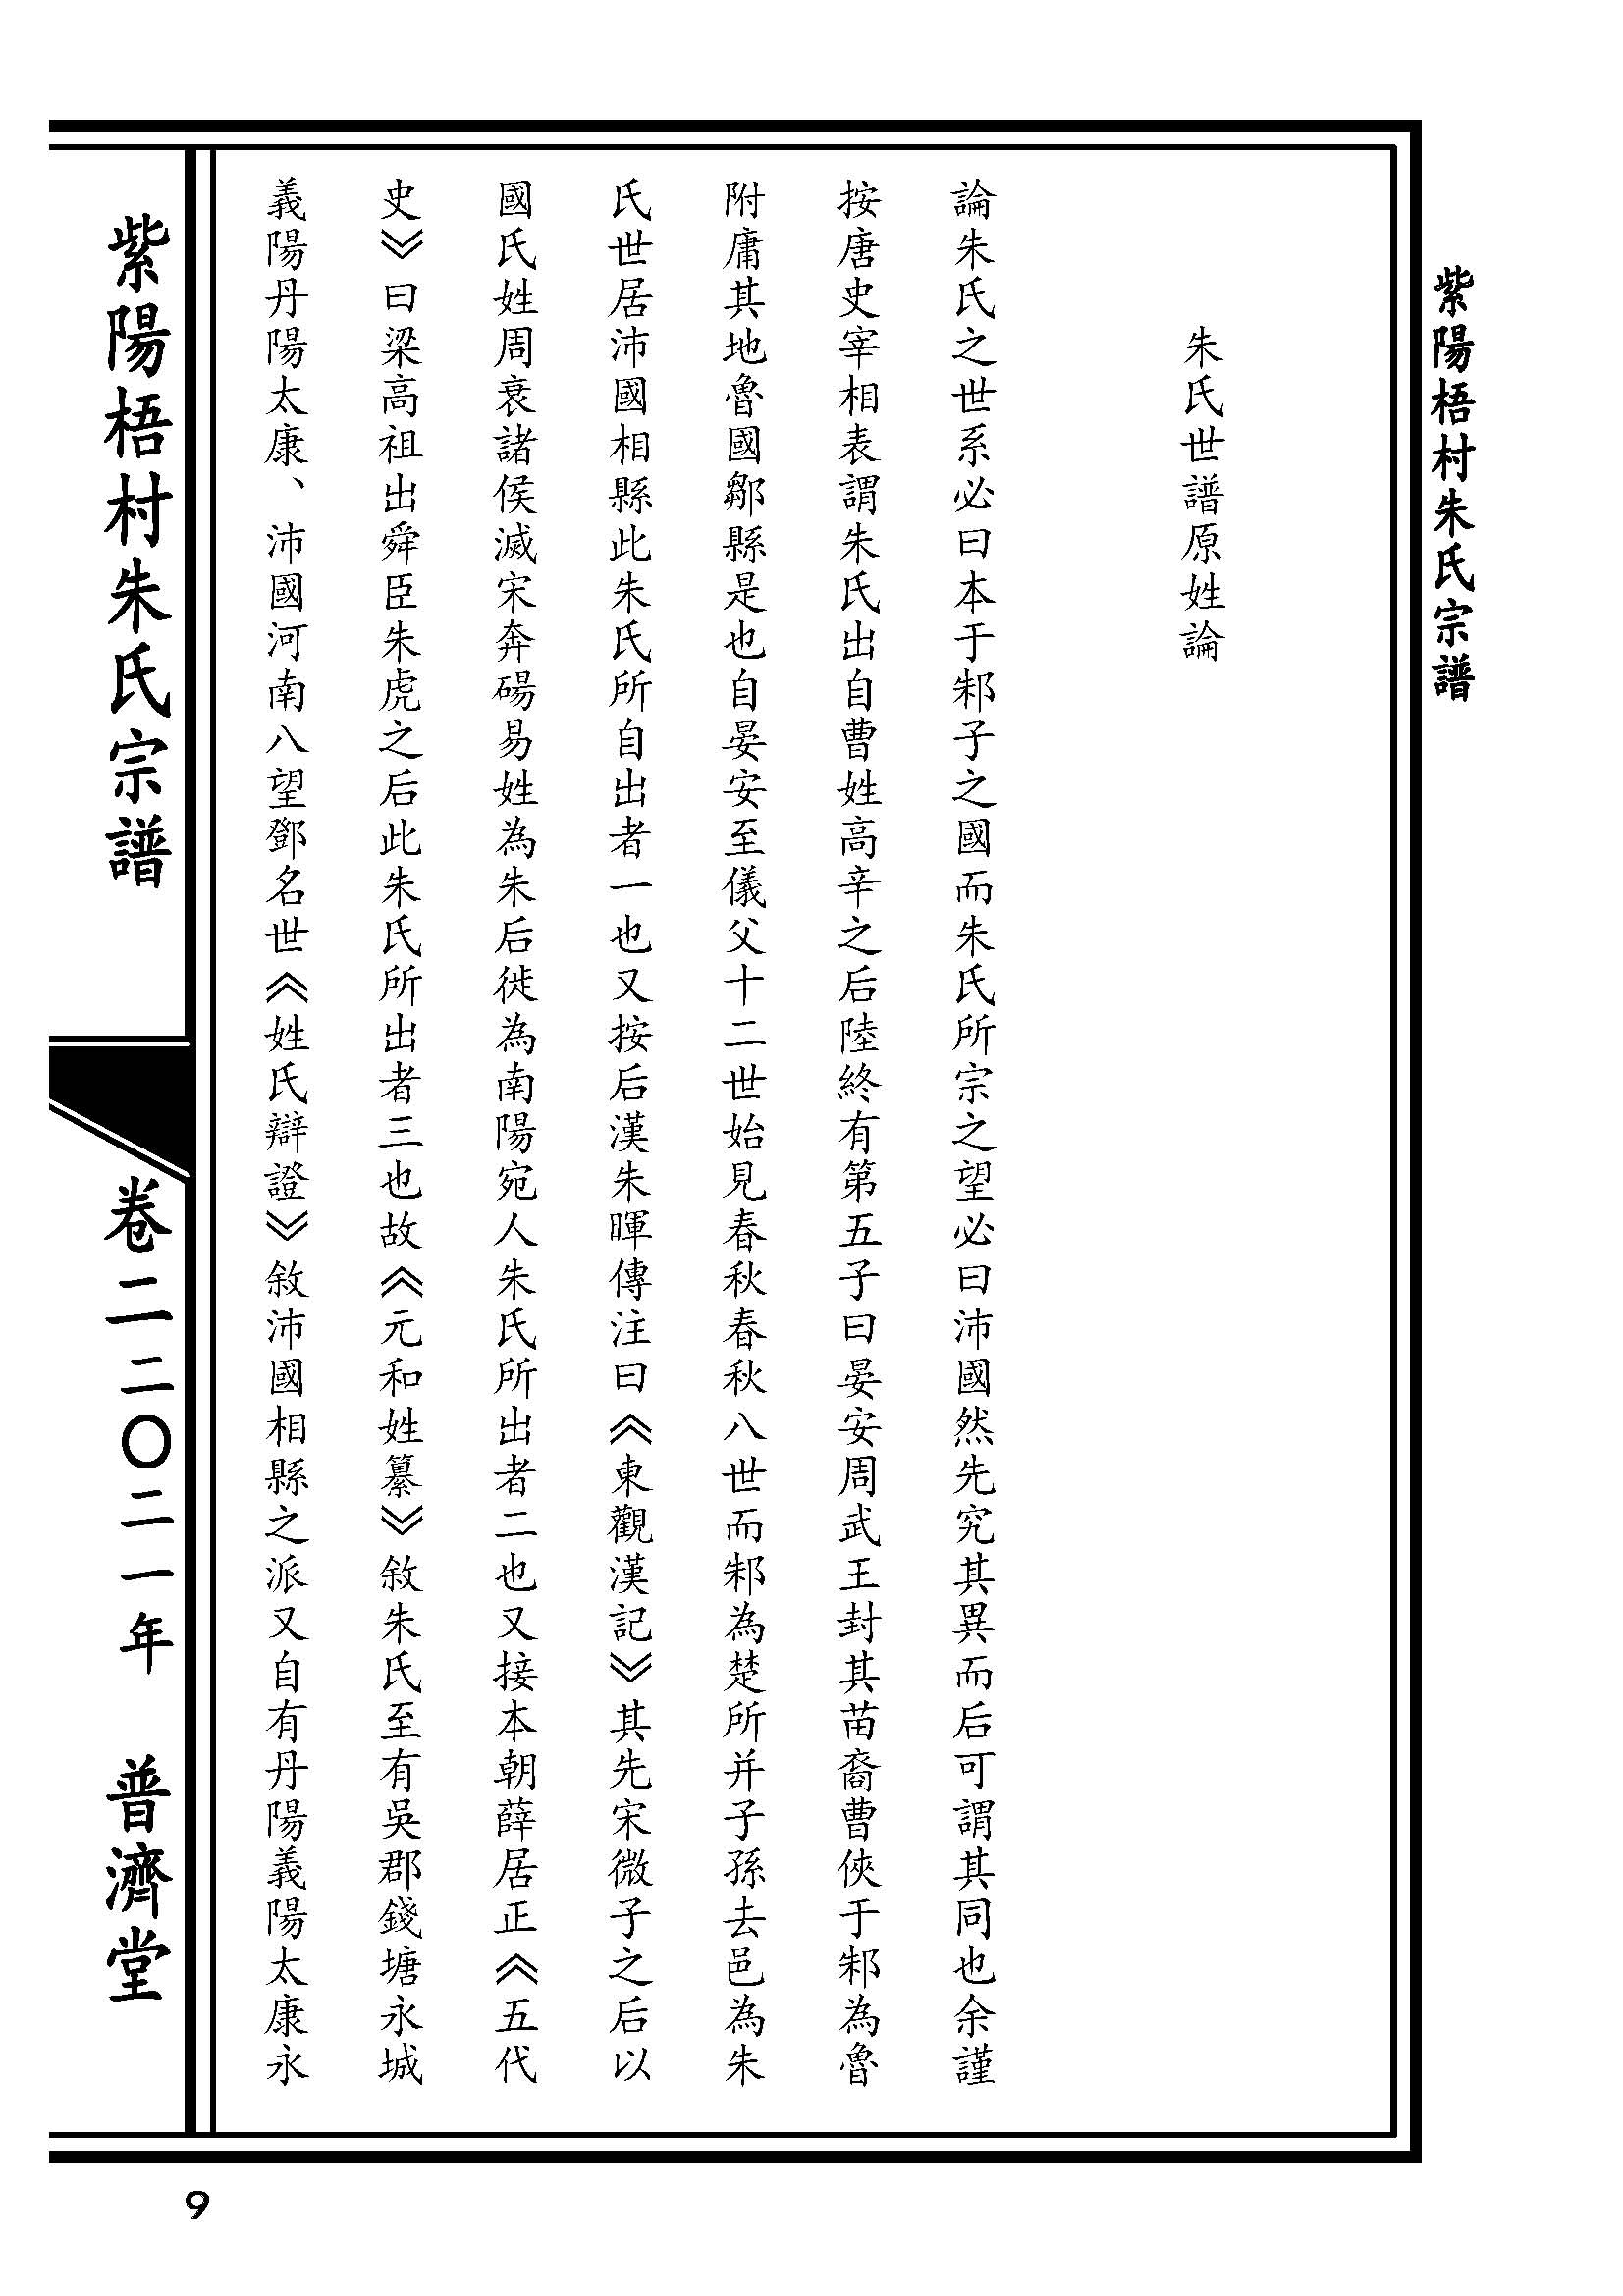 紫陽梧村朱氏宗譜
朱氏世譜原姓論
論朱氏之世系必曰本于邾子之國而朱氏所宗之望必曰沛國然先究其異而后可謂其同也余謹
按唐史宰相表謂朱氏出自曹姓高辛之后陸終有第五子曰晏安周武王封其苗裔曹俠于邾為魯
附庸其地魯國鄒縣是也自晏安至儀父十二世始見春秋春秋八世而邾為楚所并子孫去邑為朱
氏世居沛國相縣此朱氏所自出者一也又按后漢朱暉傳注曰《東觀漢記》其先宋微子之后以
國氏姓周衰諸侯滅宋奔碭易姓為朱后徙為南陽宛人朱氏所出者二也又接本朝薛居正《五代
史》曰梁高祖出舜臣朱虎之后此朱氏所出者三也故《元和姓纂》敘朱氏至有吳郡錢塘永城
義陽丹陽太康、沛國河南八望鄧名世《姓氏辯證》敘沛國相縣之派又自有丹陽義陽太康永
紫陽梧村朱氏宗譜 卷二二〇二一年 普濟堂
9